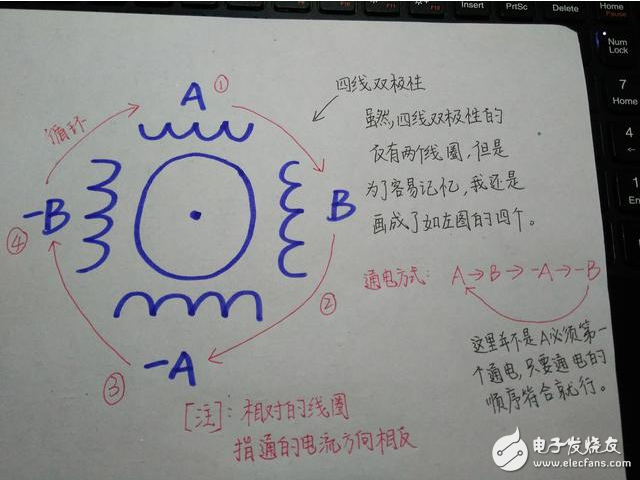 Insert
PrtSc
Delete
Home
Pause
Num
Lock
7
Home
4
←
1
En
0
四线双极性
虽然,四线双极性的
仅有两个线圈,但是
为了容易记忆,我还是
画成了如左图的四个。
通电方式: A→B→-A→-B
这里并不是A必须第一
个通电,只要通电的
顺序符合就行。
A ①
循环
-B
④
B
②
-A
③
[注]:相对的线圈
指通的电流方向相反
电子发烧友
www.elecfans.com